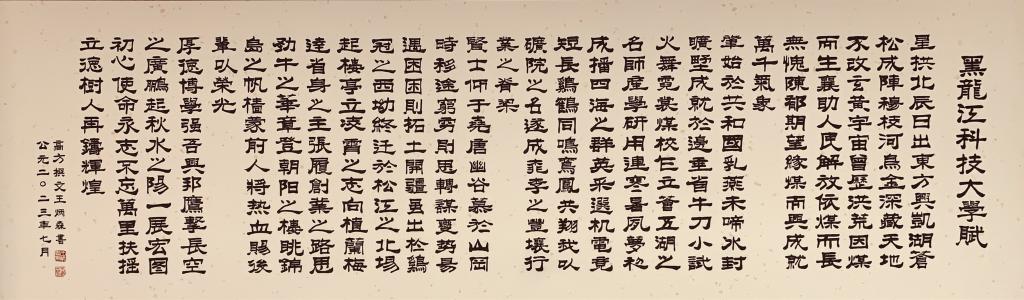 黑龍江科技大學賦
星拱北辰日出東方興凱湖蒼
松成陣穆棱河烏金深藏天地
不改玄黃宇宙曾歷洪荒因煤
而生襄助人民解放依煤而長
無愧陳郁期望緣煤而興成就
萬千氣象
肇始於共和國乳燕未啼冰封
曠野成就於邊陲省牛刀小試
火舞霓裳煤校屹立蓄五湖之
名師產學研用連寒暑夙夢初
成播四海之群英采選机電竟
短長鷄鶴同鳴鸞鳳共翔我以
礦院之名遂成桃李之豐壤行
業之脊梁
賢士仰于堯唐幽谷慕於山岡
時移途窮窮則思轉謀變勢易
遇困困則拓土開疆虽出於鷄
冠之西坳終迁於松江之北場
起樓亭立凌霄之志向植蘭梅
達省身之主張履創業之路思
勁牛之華章登朝陽之樓眺錦
島之帆檣蒙前人將热血賜後
輩以榮光
厚德博學强吾興邦鷹擊長空
之廣鵬起秋水之陽一展宏圖
初心使命永志不忘萬里扶搖
立德樹人再鑄輝煌
高方撰文王炳森書
公元二〇二三年七月